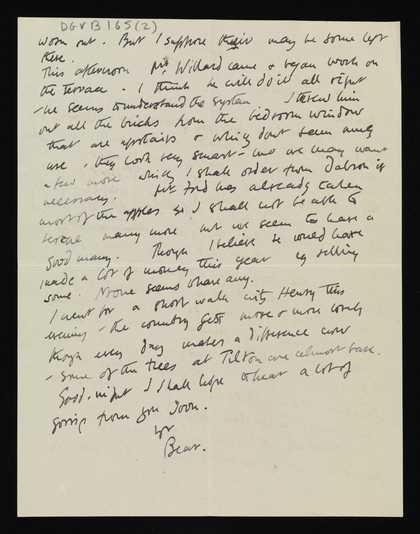 DGVB 165(2)
worn out. But I suppose there may be some left
there.
This afternoon Mr. Willard came & began work on
the terrace. I think he will do it all right
- he seems to understand the system I threw him
out all the bricks from the bedroom window
that are upstairs & which don't seem any
use. They look very smart - and we may want
a few more which I shall order from Dabson if
necessary. Mr. Ford has already taken
most of the apples so I shall not be able to
many more but we seem to have a
good many. Though I believe he could have
made a lot of money this year by selling
some. None seems to have any.
I went for a short walk with Henry this
evening - the country gets more & more lovely
though every day makes a difference now
- some of the trees at Tilton are almost bare.
Good-night I shall hope to hear a lot of
gossip from you soon.
Yr
Bear.